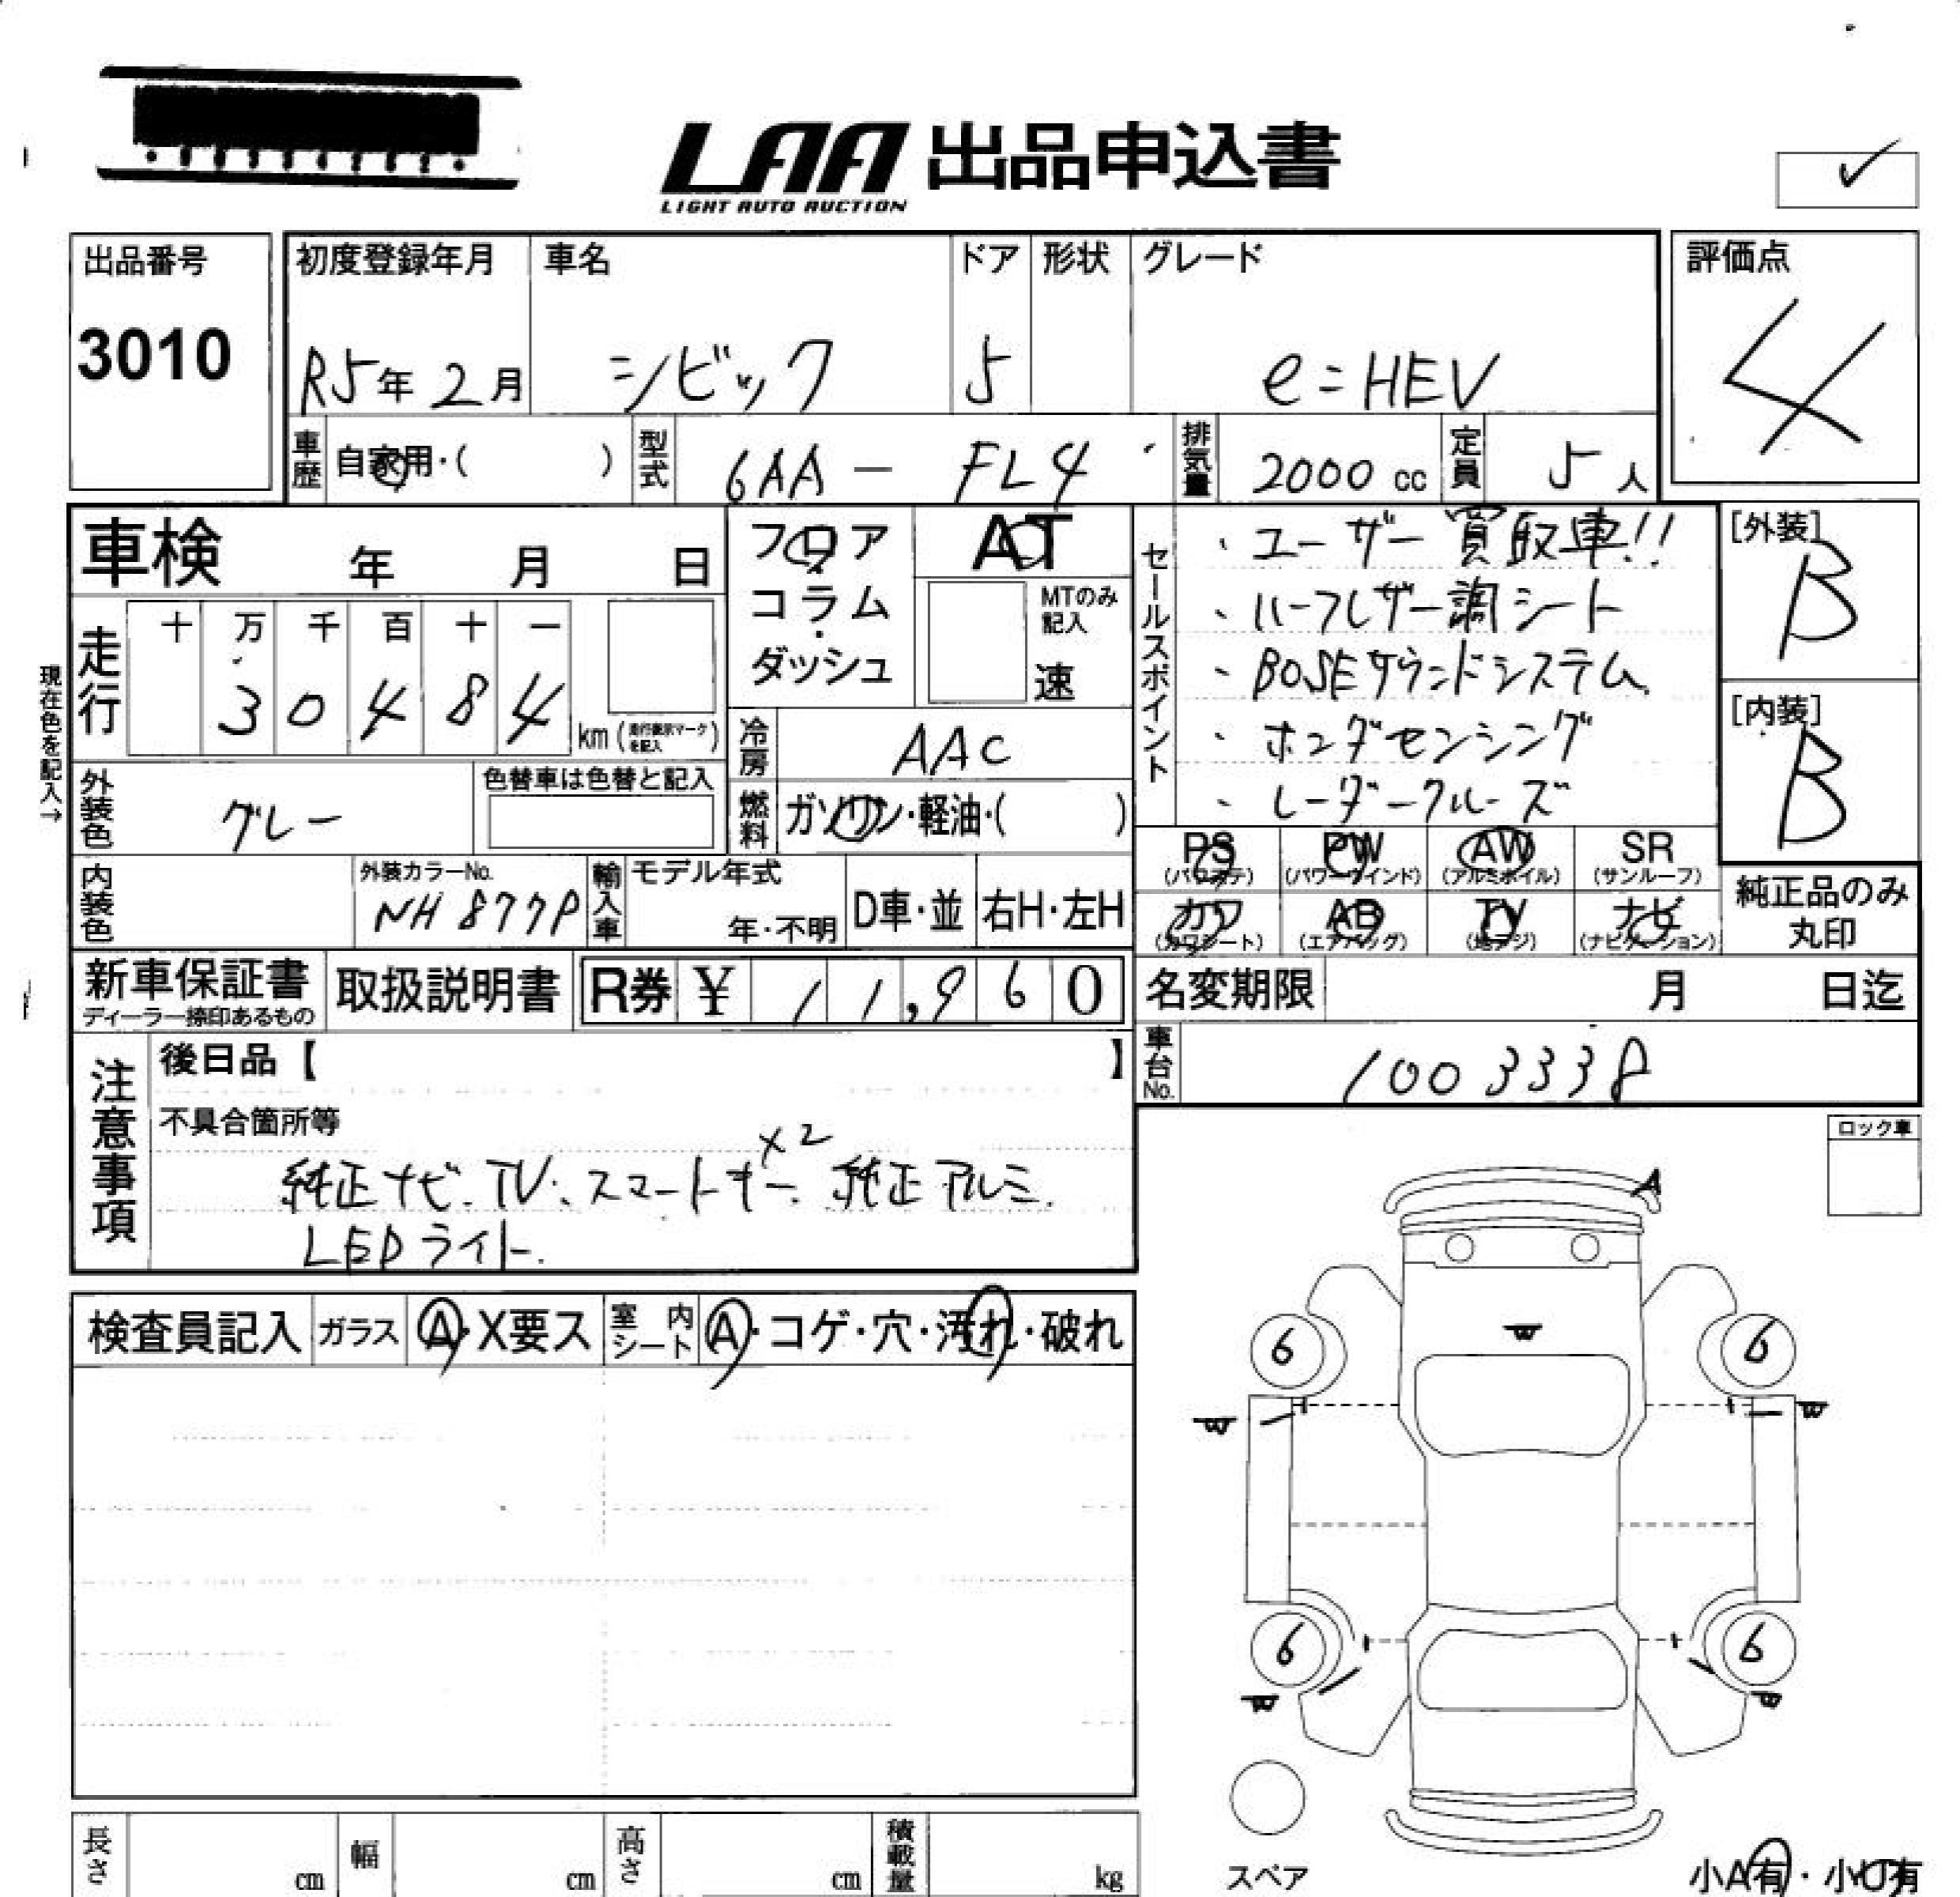 LAA 出品申込書
LIGHT AUTO AUCTION
✓
出品番号
3010
初度登録年月 車名 ドア 形状 グレード
R5年 2月 シビック 5 e=HEV
評価点
4
車歴 自家用・( ) 型式 6AA - FL4 排気量 2000 cc 定員 5 人
車検 年 月 日
フロア
コラム
・
ダッシュ
AT
MTのみ記入
速
セールスポイント
・ユーザー買取車!!
・ハーフレザー調シート
・BOSEサウンドシステム
・ホンダセンシング
・レーダークルーズ
[外装]
B
[内装]
B
現在色を記入→
走行
十 万 千 百 十 一
3 0 4 8 4 km (走行表示マークを記入)
冷房 AAC
外装色 グレー 色替車は色替と記入
燃料 ガソリン・軽油・( )
内装色 外装カラーNo. NH 877P
輸入車 モデル年式 年・不明 D車・並 右H・左H
PS (パワステ) PW (パワーウインド) AW (アルミホイル) SR (サンルーフ)
カワ (カワシート) AB (エアバッグ) TV (地デジ) ナビ (ナビゲーション)
純正品のみ
丸印
新車保証書
ディーラー捺印あるもの
取扱説明書 R券 ¥ 11,960
名変期限 月 日迄
車台No. 1003338
注意事項
後日品【 】
不具合箇所等
純正ナビ.TV.スマートキー×2 純正アルミ.
LEDライト.
ロック車
A
検査員記入 ガラス A・X要ス 室内シート A・コゲ・穴・汚れ・破れ
W
6 6
W W
6 6
W W
スペア
小A有・小U有
長さ cm 幅 cm 高さ cm 積載量 kg